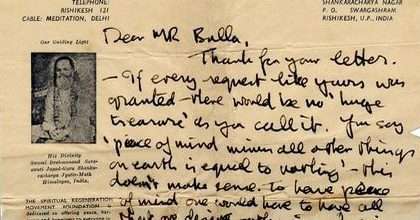 TELEPHONE:
RISHIKESH 121
CABLE: MEDITATION, DELHI
SHANKARACHARYA NAGAR
P. O. SWARGASHRAM
RISHIKESH, U.P., INDIA
Our Guiding Light
His Divinity
Swami Brahmananda Saras-
wati Jagad-Guru Shanka-
racharya Jyotir-Math
Himalayas, India.
THE SPIRITUAL REGENERATION
MOVEMENT FOUNDATION
dedicated to offering peace, har-
Dear MR Bulla,
Thanks for your letter.
- If every request like yours was
granted - there would be no 'huge
treasure' as you call it. You say
'peace of mind minus all other things
on earth is equal to nothing' - this
doesn't make sense. To have peace
of mind one would have to have all
that one